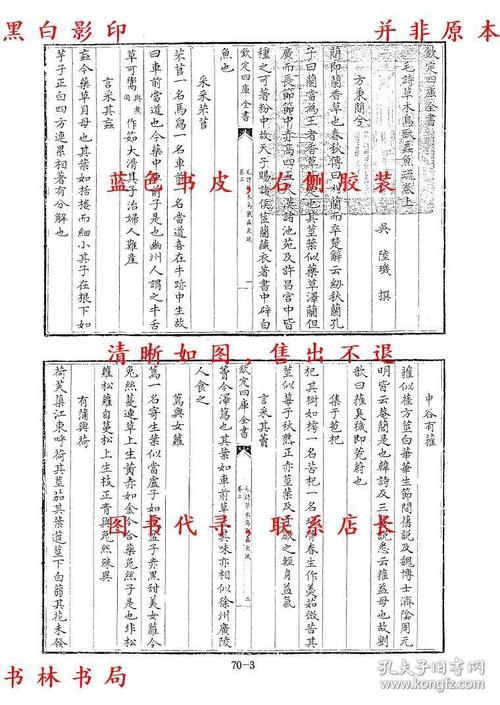 黑白影印
并非原本
欽定四庫全書
毛詩草木鳥獸蟲魚疏卷上
吳 陸璣 撰
方秉蕳兮
蕳即蘭香草也春秋傳曰刈蘭而卒楚辭云紉秋蘭孔
子曰蘭當為王者香草皆是也其莖葉似藥草澤蘭但
廣而長節節中赤高四五尺漢諸池苑及許昌宮中皆
種之可著粉中故天子賜諸侯茝蘭藏衣著書中辟白
魚也
采采芣苢
芣苢一名馬舄一名車前一名當道喜在牛跡中生故
曰車前當道也今藥中車前子是也幽州人謂之牛舌
草可鬻作茹大滑其子治婦人難產
言采其蝱
蝱今藥草貝母也其葉如栝樓而細小其子在根下如
芋子正白四方連累相著有分解也
蓝色书皮,右侧胶装
清晰如图,售出不退
中谷有蓷
蓷似萑方莖白華華生節間舊説及魏博士濟陰周元
明皆云菴䕡是也韓詩及三蒼説悉云蓷益母也故劉
歆曰蓷臭穢即茺蔚也
集于苞杞
杞其樹如樗一名苦杞一名地骨春生作羹茹微苦其
莖似莓子秋熟正赤莖葉及子服之輕身益氣
言采其藚
藚今澤蕮也其葉如車前草大其味亦相似徐州廣陵
人食之
蔦與女蘿
蔦一名寄生葉似當盧子如覆盆子赤黑甜美女蘿今
兔絲蔓連草上生黃赤如金今合藥兔絲子是也非松
蘿松蘿自蔓松上生枝正青與兔絲殊異
有蒲與荷
荷芙蕖江東呼荷其莖茄其葉蕸莖下白蒻其花未發
图书代寻,联系店长
70-3
书林书局
孔夫子旧书网
www.kongfz.com